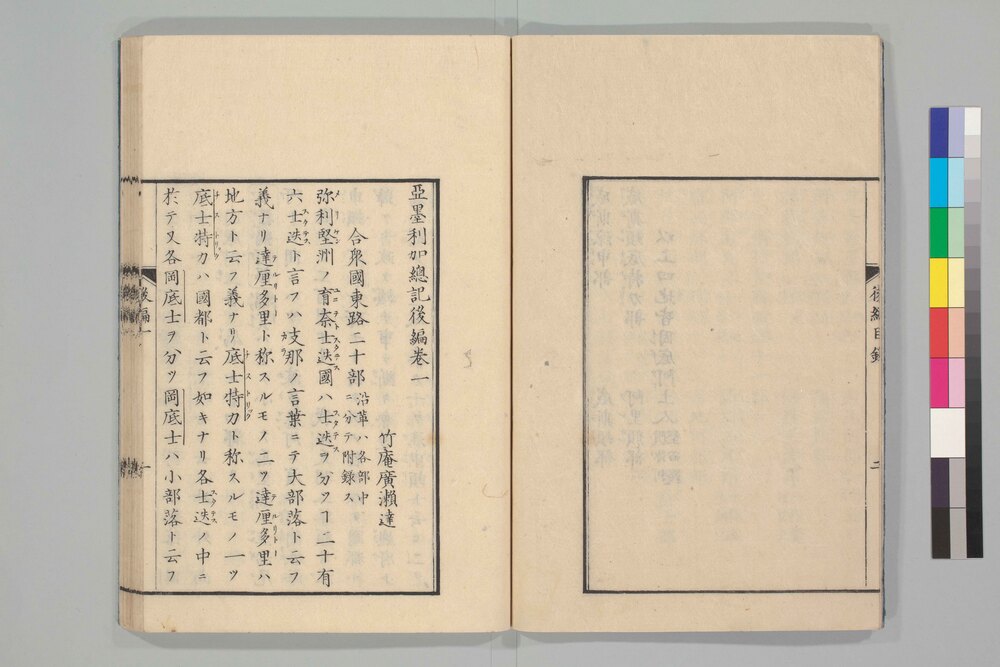 後編目錄
二
亞墨利加總記後編卷一
竹庵廣瀨達
合衆國東路二十部 沿革ハ各部中ニ分テ附錄ス
弥利堅洲ノ育奈士迭國ハ士迭ヲ分ツヿ二十有
六士迭ト言フハ支那ノ言葉ニテ大部落ト云フ
義ナリ達厘多里ト称スルモノ二ツ達厘多里ハ
地方ト云フ義ナリ底士特力ト称スルモノ一ツ
底士特力ハ國都ト云フ如キナリ各士迭ノ中ニ
於テ又各岡底士ヲ分ツ岡底士ハ小部落ト云フ
後編一
一